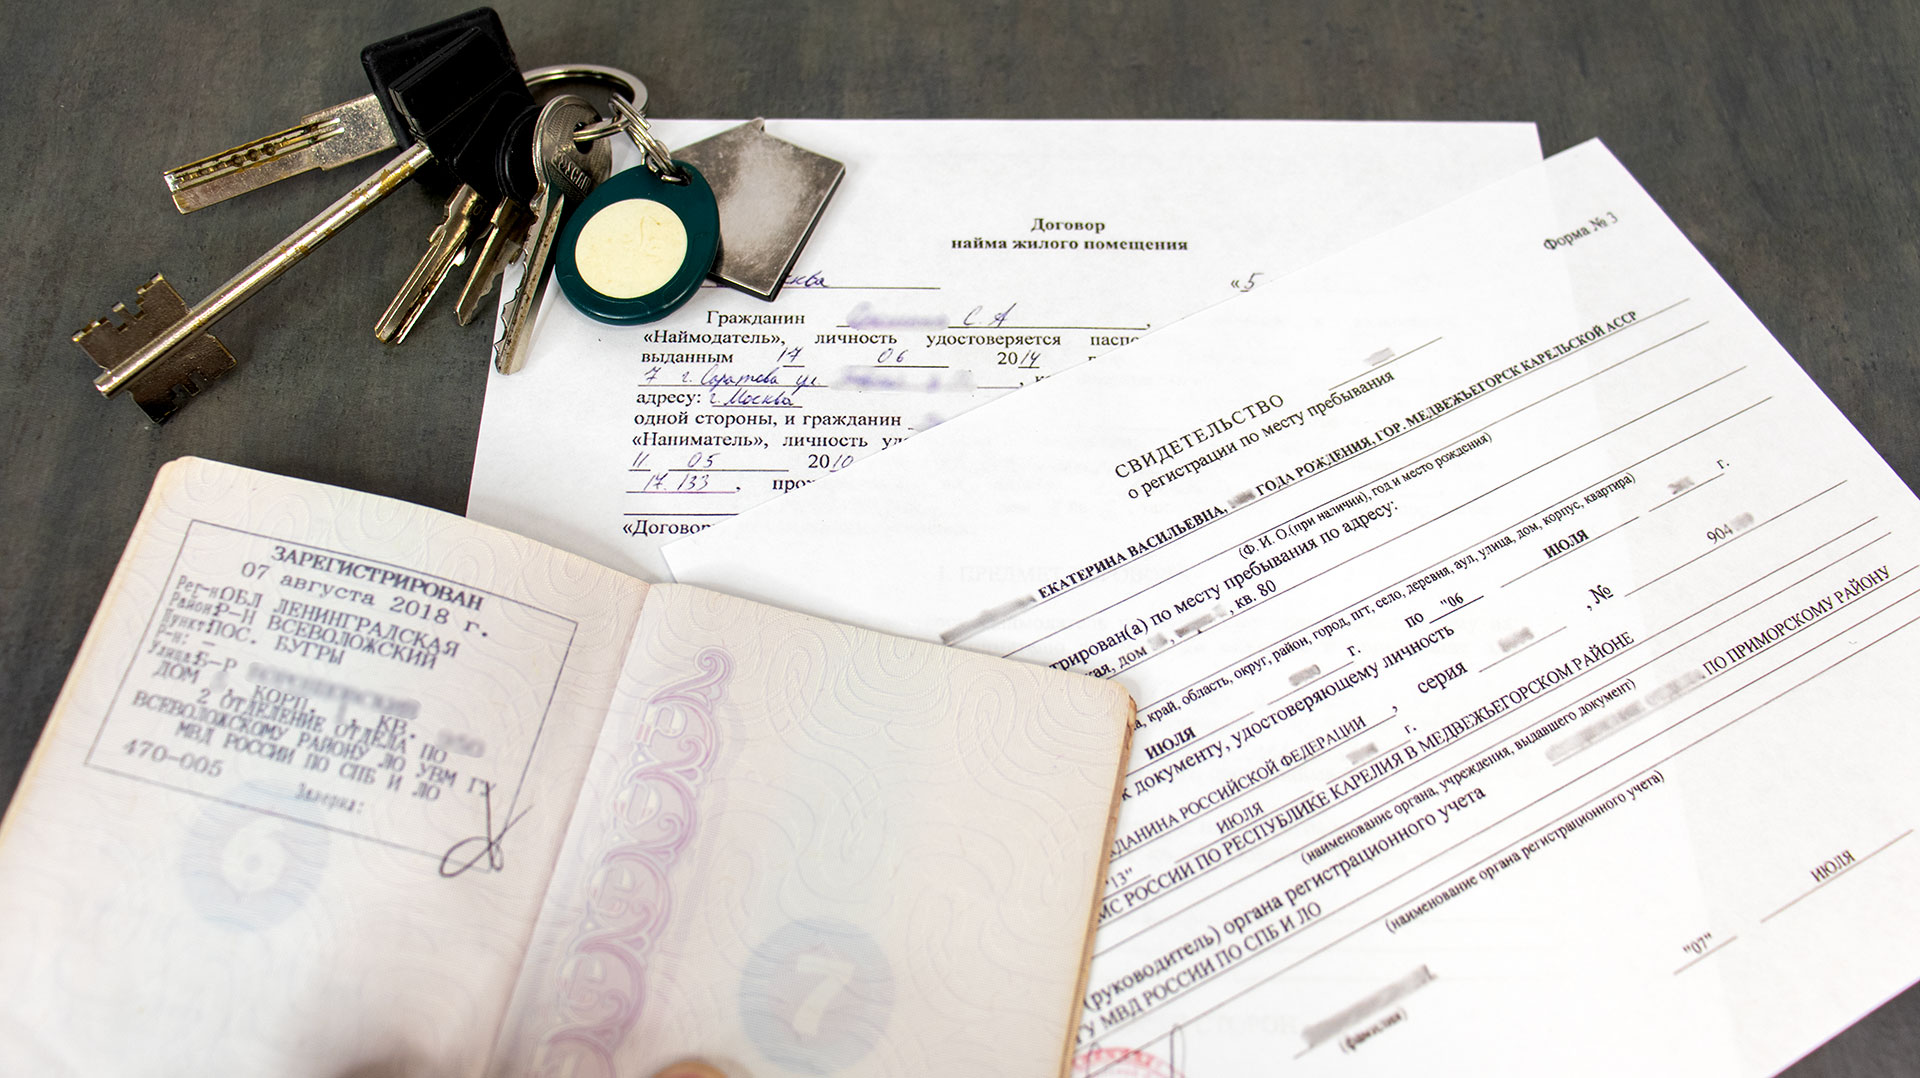 Договор
найма жилого помещения
сква
«5
Гражданин С. А ,
«Наймодатель», личность удостоверяется паспо
выданным 17 06 2014 г
7 г. Саратова ул. , к
адресу: г. Москва
одной стороны, и гражданин
«Наниматель», личность уд
11 05 2010
17.133 , про
«Договор
Форма № 3
СВИДЕТЕЛЬСТВО
о регистрации по месту пребывания
ЕКАТЕРИНА ВАСИЛЬЕВНА, ГОДА РОЖДЕНИЯ, ГОР. МЕДВЕЖЬЕГОРСК КАРЕЛЬСКОЙ АССР
(Ф. И. О.(при наличии), год и место рождения)
трирован(а) по месту пребывания по адресу:
кая, дом , , кв. 80
а, край, область, округ, район, город, пгт, село, деревня, аул, улица, дом, корпус, квартира)
ИЮЛЯ г. по "06 ИЮЛЯ г.
к документу, удостоверяющему личность
ЖДАНИНА РОССИЙСКОЙ ФЕДЕРАЦИИ , серия , № 904
"13" ИЮЛЯ г.
МС РОССИИ ПО РЕСПУБЛИКЕ КАРЕЛИЯ В МЕДВЕЖЬЕГОРСКОМ РАЙОНЕ
(наименование органа, учреждения, выдавшего документ)
ПО ПРИМОРСКОМУ РАЙОНУ
(наименование органа регистрационного учета)
(руководитель) органа регистрационного учета
ГУ МВД РОССИИ ПО СПБ И ЛО
(фамилия)
"07" ИЮЛЯ
ЗАРЕГИСТРИРОВАН
07 августа 2018 г.
Рег-н: ОБЛ ЛЕНИНГРАДСКАЯ
Район: Р-Н ВСЕВОЛОЖСКИЙ
Пункт: ПОС. БУГРЫ
Р-н: -
Улица: Б-Р
ДОМ КОРП. КВ.
2 ОТДЕЛЕНИЕ ОТДЕЛА ПО
ВСЕВОЛОЖСКОМУ РАЙОНУ ЛО УВМ ГУ
МВД РОССИИ ПО СПБ И ЛО
470-005
Заверил:
6
7